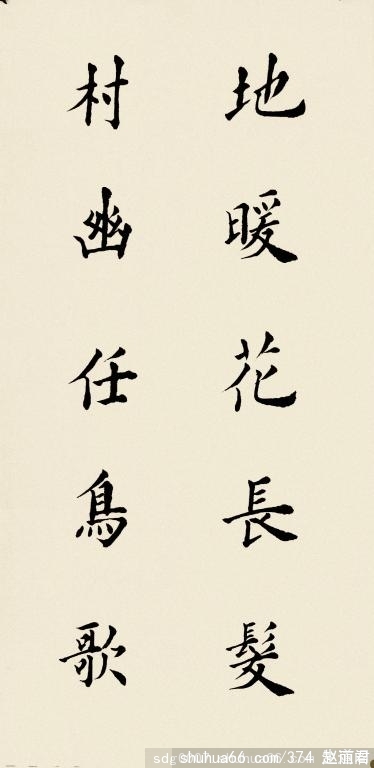 地暖花長髮
村幽任鳥歌
shuhua66 com/374